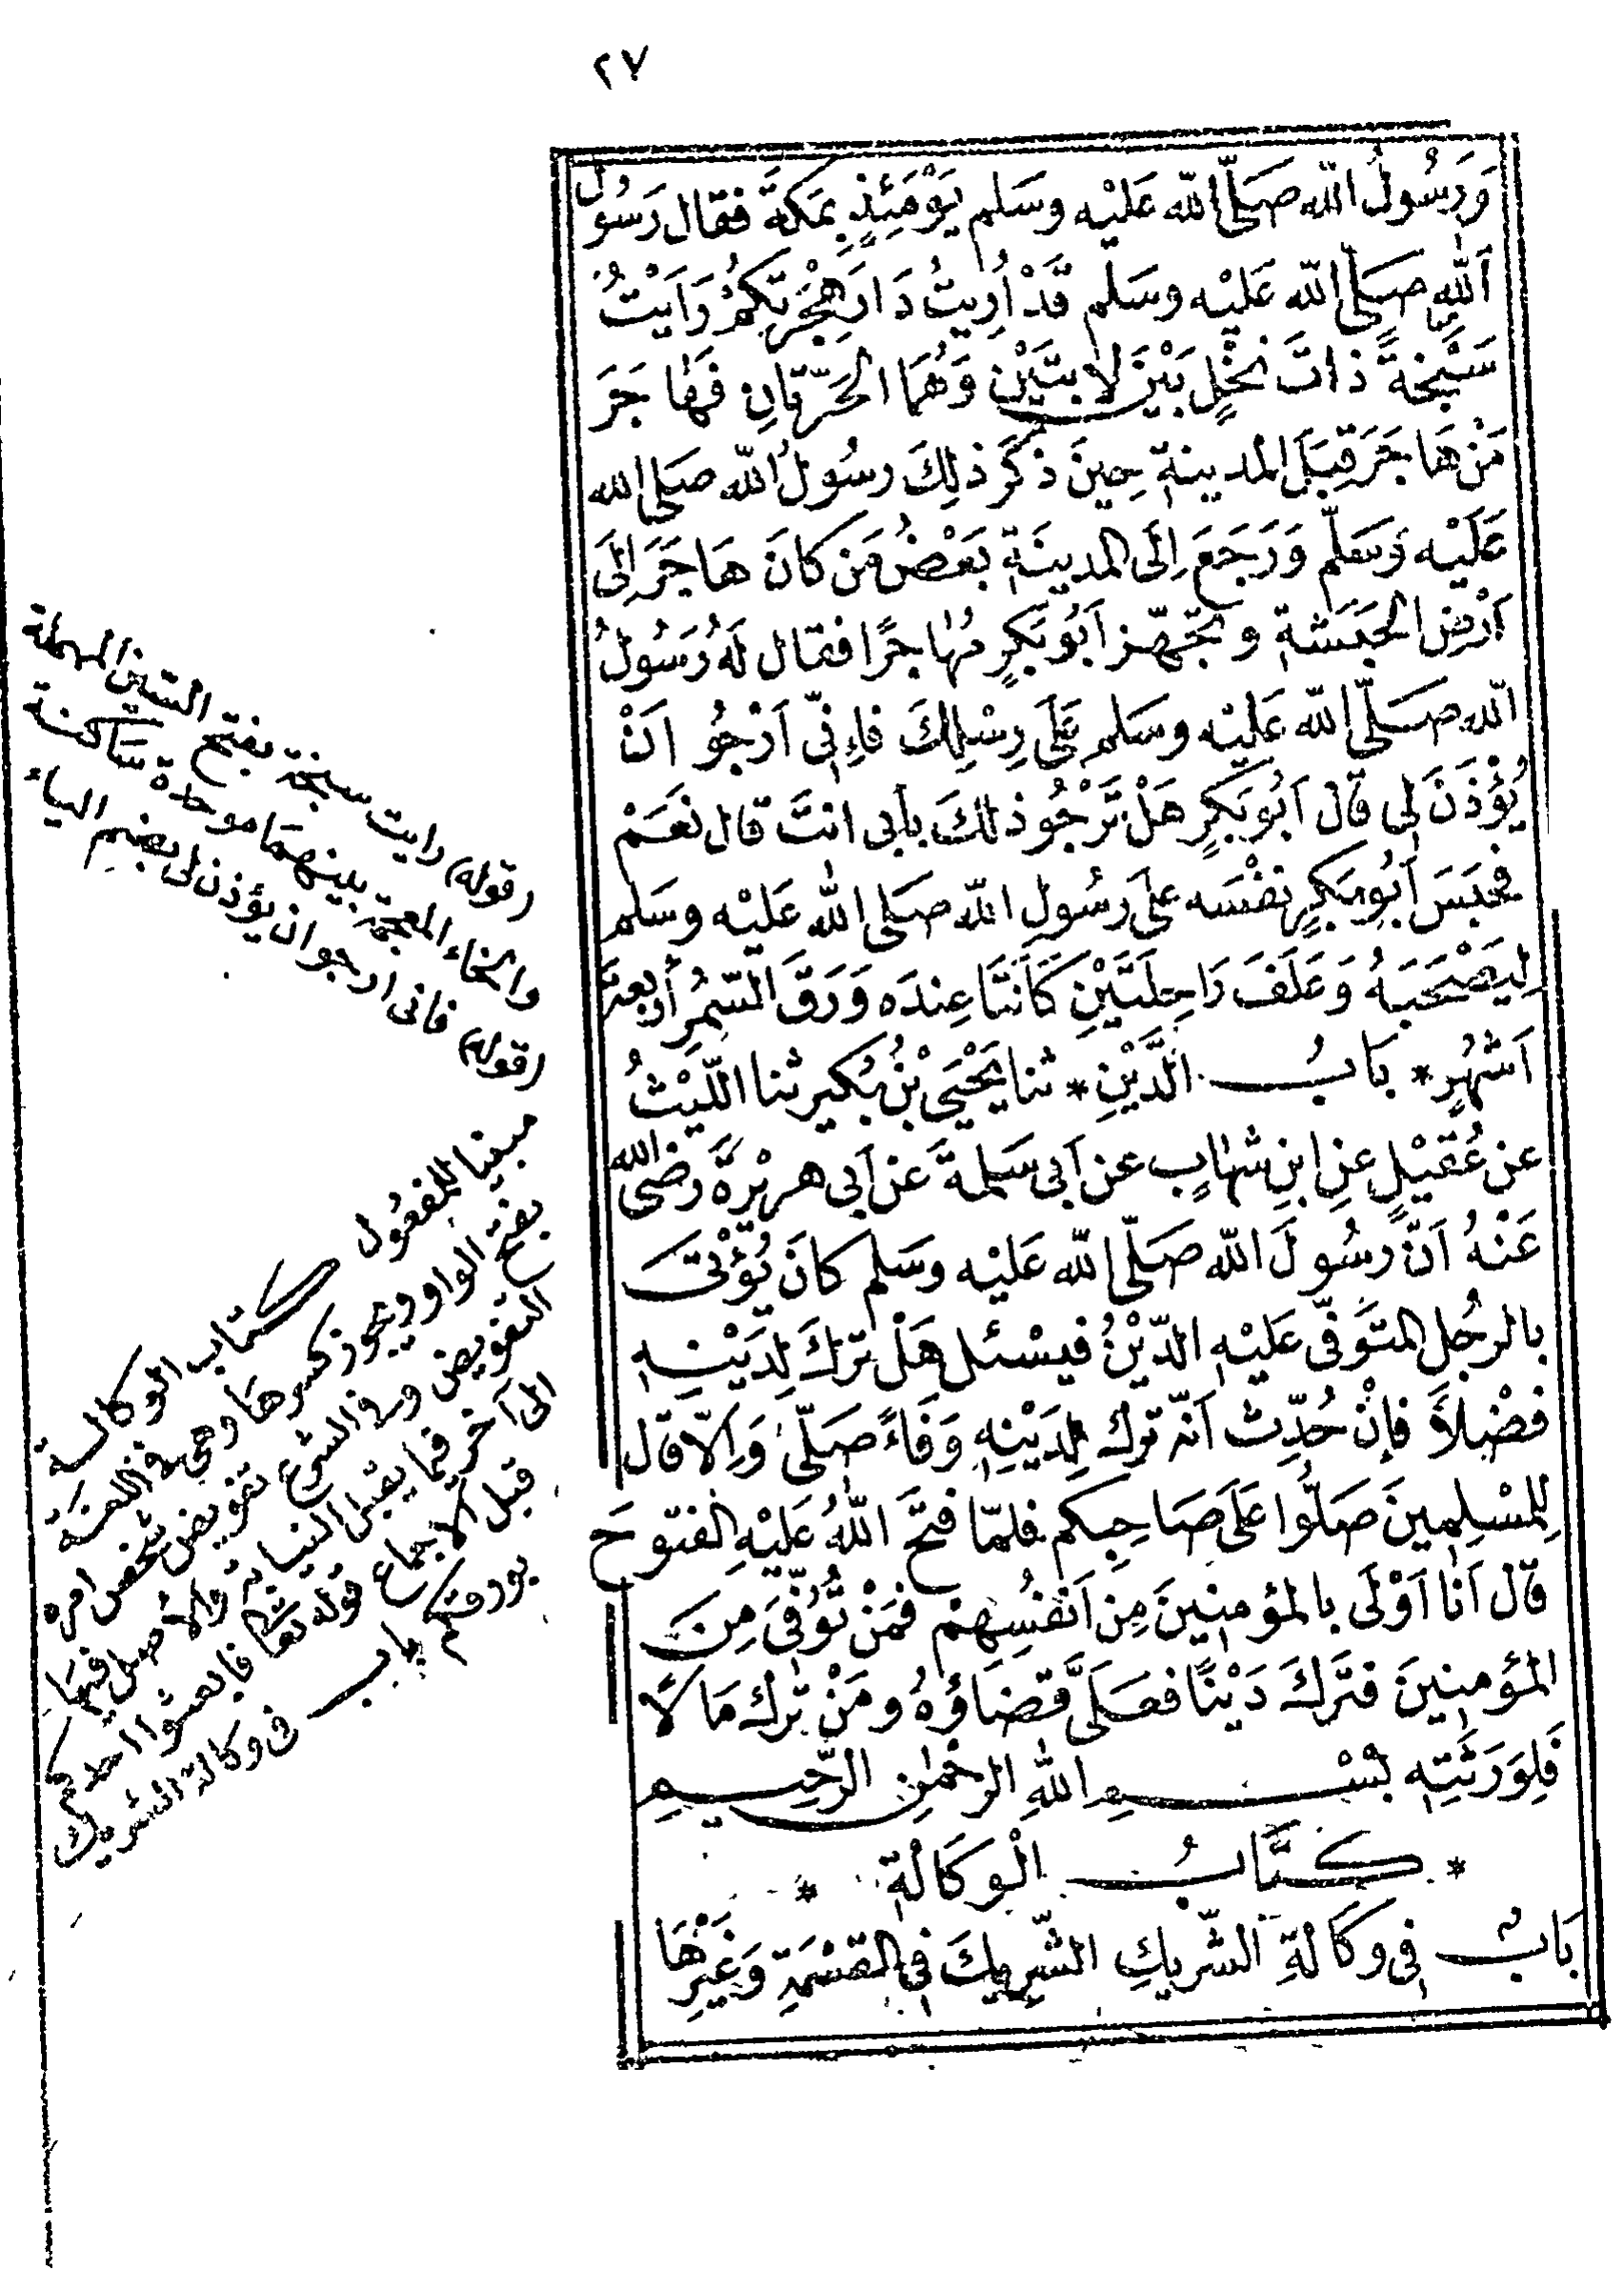 ٢٧
وَرَسُولُ اللّه صَلَّى اللّه عَلَيْه وسَلم يَوْمَئِذٍ بِمَكَةَ فقال رَسُولُ
اَللّٰهِ صَلَّى اللّه عَلَيْه وسَلم قَدْ اُرِيتُ دَارَ هِجْرَتِكُمْ رَاَيْتُ
سَبْخَةً ذاتَ نَخْلٍ بَيْنَ لاَ بَتَيْنِ وَهُمَا الحَرَّتانِ فَهٰاجَرَ
مَنْ هَاجَرَ قِبَلَ المدينةِ حِينَ ذكَرَ ذلِكَ رسُولُ اللّه صَلى الله
عَلَيْه وَسَلّم وَرَجَعَ اِلَى المدينَةِ بَعْضُ مَن كانَ هَاجَرَ اِلَى
اَرْضِ الحَبَشَةِ وتَجَهّز اَبُو بَكرٍ مُهٰاجِرًا فقال لَهُ رَسُولُ
اللّه صَلَّى اللّه عَلَيْه وسَلم عَلَى رِسْلِكَ فاِنِّى اَرْجُو اَنْ
يُؤْذَنَ لِى قال اَبُو بَكرٍ هَلْ تَرْجُو ذلكَ بأبى انتَ قال نَعَمْ
فحَبَسَ اَبُو بَكرٍ نفْسَه علَى رسُولِ اللّه صَلى اللّه عَلَيْه وسَلم
لِيَصْحَبَهُ وَعَلَفَ رَاحِلَتَيْنِ كَانَتَا عِندَه وَرَقَ السّمُرِ أربعةَ
اَشْهُرٍ * بَابُ الدَّيْنِ * ثنا يَحْيَى بْنُ بُكَيرٍ ثنا اللّيْثُ
عن عُقَيْلٍ عنِ ابنِ شهٰابٍ عن اَبى سَلمةَ عَن اَبى هريْرَةَ رَضى الله
عَنْهُ اَنّ رسُولَ اللّه صَلّى اللّه عَلَيْه وسَلم كانَ يُؤْتَى
بالرجُلِ المتوَفّى عَلَيْهِ الدّيْنُ فيسْئل هَلْ ترَكَ لِدَيْنِهِ
فضْلاً فاِنْ حُدِّث اَنّه ترك لِدَيْنِهِ وَفَاءً صَلّى وَاِلاّ قال
لِلمسْلِمِينَ صَلُّوا عَلَى صَاحِبِكم فلمّا فتحَ اللّٰهُ عَلَيْهِ الفتوحَ
قال اَنا اَوْلَى بالمؤمِنِينَ مِن اَنفسُِهِمْ فمَنْ تُوُفِّىَ مِنَ
المؤمِنِينَ فتَرَكَ دَيْنًا فعَلَىَّ قضَاؤهُ ومَنْ ترك مَالاً
فَلِوَرَثَتِهِ بسْمِ اللّٰهِ الرحْمٰنِ الرّحِيمِ
* كتَابُ الْوَكَالَةِ *
بَابٌ فى وكَالةِ الشّريكِ الشّرِيكَ فى القسْمَةِ وَغيْرِهَا
(قوله) رايت سبخة بفتح السين المهملة
والخاء المعجمة بينهما موحدة ساكنة
(قوله) فانى ارجو ان يؤذن لى بضم الياء
مبنيا للمفعول كتاب الوكالة
بفتح الواو ويجوز كسرها وهى فى اللغة
التفويض وفى الشرع تفويض شخص امره
الى آخر فيما يقبل النيابة والاصل فيها
قبل الاجماع قوله تعا فابعثوا احدكم
بورقكم باب فى وكالة الشريك